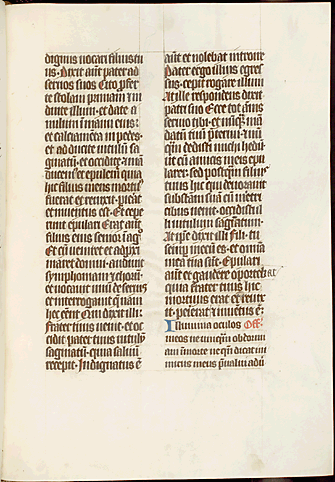 dignus vocari filius tu
us. Dixit aut pater ad
servos suos Cito profer
te stolam primam et in
duite illum. et date a
nulum in manu eius.
et calciamenta in pedes.
et adducite vitulu sa
ginatu. et occidite. et ma
ducem. et epulem quia
hic filius meus mortu
fuerat et revixit. perie
et inventus est. Et cepe
runt epulari Erat aut
filius eius senior i agro
Et cu veniret et appro
maret domui. audivit
symphoniam et choru.
et vocavit unu de servis
et interrogavit que nam
hec eent Qui dixit illi.
frater tuus venit. et oc
cidit pater tuus vitulu
saginatu. quia salvu
recepit. Indignatus e
aut et nolebat introire
Pater ergo illius egres
sus. cepit rogare illum
At ille respondens dixit
patri suo Ecce tot annis
servio tibi. et nuqm ma
datu tuu preterivi. et nu
qm dedisti michi hedu
ut cu amicis meis epu
larer. sed postqm filius
tuus hic qui devoravit
substam sua cu meret
cibus venit. occidisti il
li vitulum saginatum
At ipse dixit illi Fili. tu
semp mecu es. et omnia
mea tua sut. Epulari
aut et gaudere oportebat
quia frater tuus hic
mortuus erat et revix
it. perierat et inventus e.
Illumina oculos Off.
meos ne umqm obdormi
am i morte ne qn dicat ini
micus meus pvalui adv